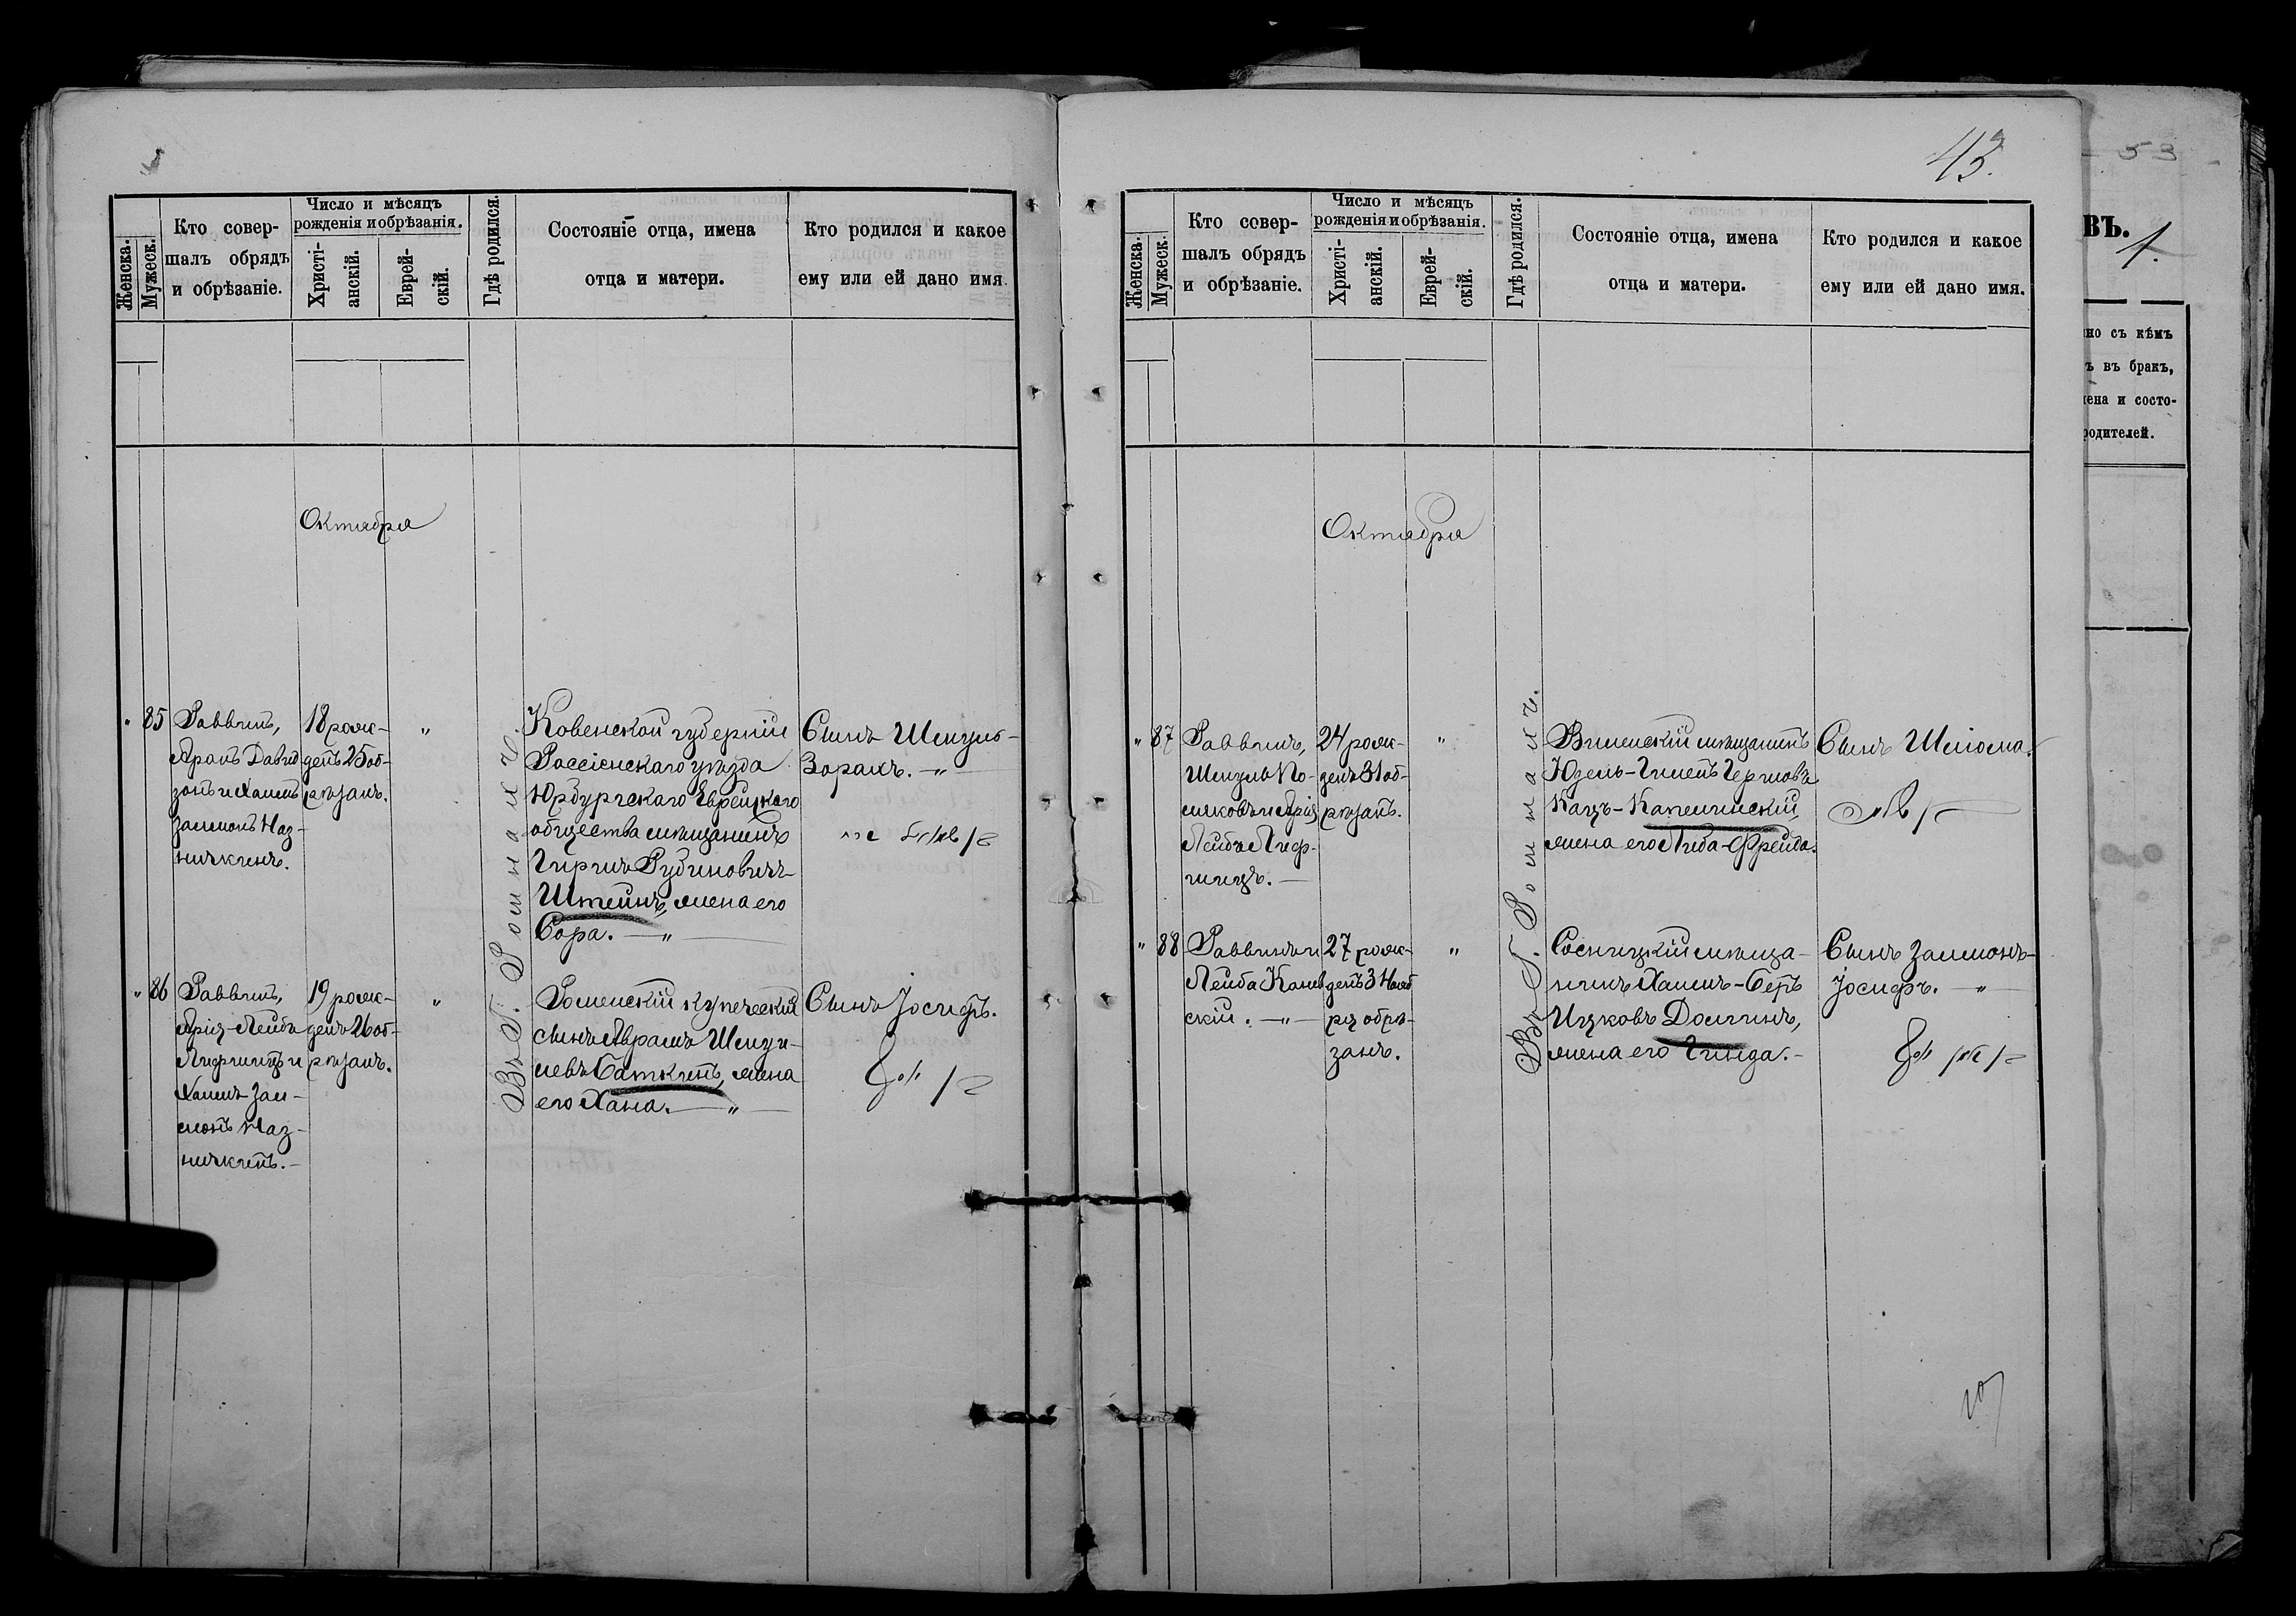 Женска.
Мужеск.
Кто совер-
шалъ обрядъ
и обрѣзаніе.
Число и мѣсяцъ
рожденія и обрѣзанія.
Христі-
анскій.
Еврей-
скій.
Гдѣ родился.
Состояніе отца, имена
отца и матери.
Кто родился и какое
ему или ей дано имя.
Октября
" 85
Раввинъ,
Аронъ Давид
зонъ и Хаимъ
Залмонъ Наз-
18 рож-
денъ 25 об-
рѣзанъ.
"
Ковенской губерніи
Россіенскаго уѣзда
Юрбургскаго Еврейского
общества мѣщанинъ
Гиршъ Рубиновичъ
Штейнъ, жена его
Сора. — "
Сынъ Шмуль-
Зорахъ. — "
" 86
Раввинъ,
Арія-Лейба
Лифшицъ и
Хаимъ Зал-
монъ Наз-
19 рож-
денъ 26 об-
рѣзанъ.
"
Роменскій купеческій
сынъ Аврамъ Шмуй-
левъ Баткинъ, жена
его Хана. — "
Сынъ Іосифъ.
Въ Г. Ромнахъ.
43.
Женска.
Мужеск.
Кто совер-
шалъ обрядъ
и обрѣзаніе.
Число и мѣсяцъ
рожденія и обрѣзанія.
Христі-
анскій.
Еврей-
скій.
Гдѣ родился.
Состояніе отца, имена
отца и матери.
Кто родился и какое
ему или ей дано имя.
Октября
" 87
Раввинъ,
Шмуль По-
ляковъ и Арія
Лейба Лиф-
шицъ. —
24 рож-
денъ 31 об-
рѣзанъ.
"
Виленскій мѣщанинъ
Юдель-Гилелъ Гершовъ
Кацъ-Капелинскій,
жена его Либа-Фрейда.
Сынъ Шлiома.
" 88
Раввинъ и
Лейба Канев
скій. — "
27 рож-
денъ 3 Нояб
ря обрѣ-
занъ.
"
Сосницкій мѣща-
нинъ Хаимъ-Беръ
Ицковъ Долгинъ,
жена его Гинда. -
Сынъ Залмонъ-
Іосифъ. — "
Въ Г. Ромнахъ.
53
ВЪ.
1.
но съ кѣмъ
ъ въ бракъ,
ена и состо-
родителей.